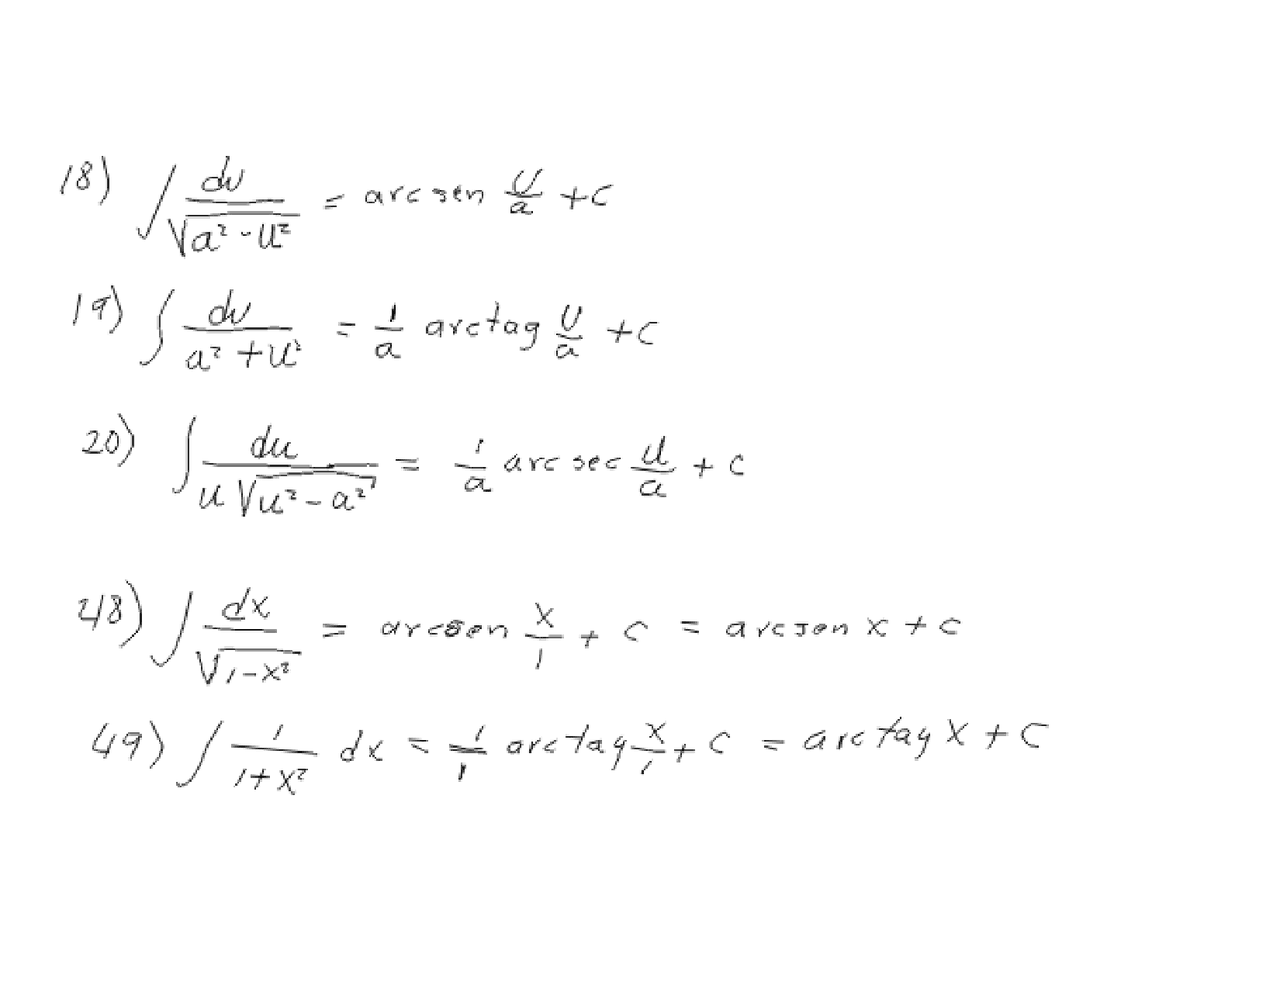 18) ∫ du/√(a² - u²) = arcsen u/a + c
19) ∫ du/(a² + u²) = 1/a arctag u/a + c
20) ∫ du/(u √(u² - a²)) = 1/a arcsec u/a + c
48) ∫ dx/√(1 - x²) = arcsen x/1 + c = arcsen x + c
49) ∫ 1/(1 + x²) dx = 1/1 arctag x/1 + c = arctag x + c